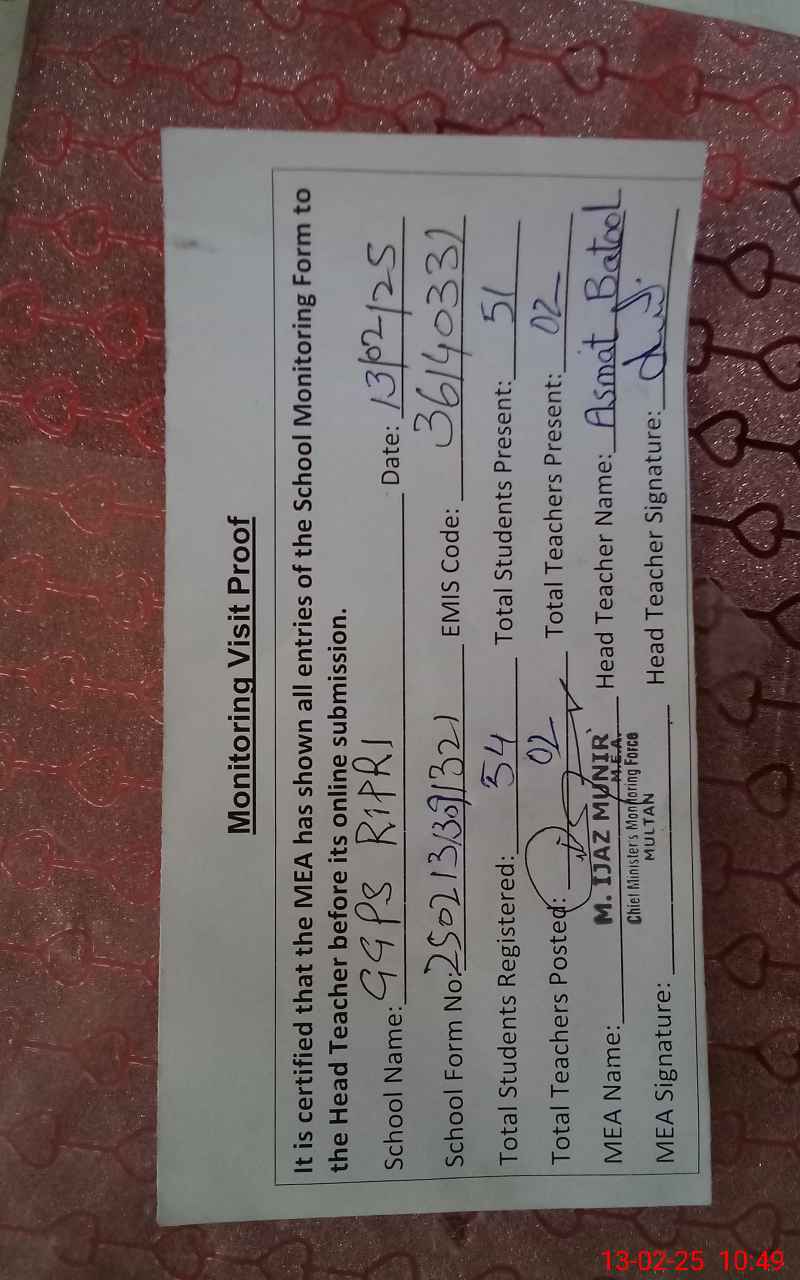 Monitoring Visit Proof
It is certified that the MEA has shown all entries of the School Monitoring Form to
the Head Teacher before its online submission.
School Name: GGPS RIPRI Date: 13/02/25
School Form No: EMIS Code: 36140331
Total Students Registered: 54 Total Students Present: 51
Total Teachers Posted: 02 Total Teachers Present: 02
MEA Name: M. IJAZ MUNIR Head Teacher Name: Asmat Batool
M.E.A.
Chief Minister's Monitoring Force
MULTAN
MEA Signature: Head Teacher Signature:
13-02-25 10:49